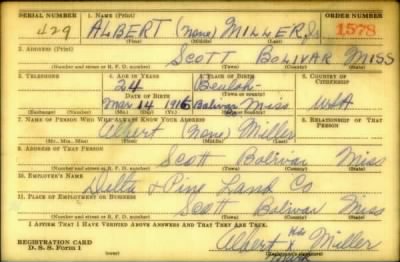 SERIAL NUMBER 1. NAME (Print) ORDER NUMBER
429 ALBERT (none) MILLER, Jr 1578
(First) (Middle) (Last)
2. ADDRESS (Print)
SCOTT BOLIVAR MISS
(Number and street or R. F. D. number) (Town) (County) (State)
3. TELEPHONE 4. AGE IN YEARS 5. PLACE OF BIRTH 6. COUNTRY OF CITIZENSHIP
24 Beulah
DATE OF BIRTH (Town or county)
Mar 14 1916 Bolivar Miss USA
(Exchange) (Number) (Mo.) (Day) (Yr.) (State or country)
7. NAME OF PERSON WHO WILL ALWAYS KNOW YOUR ADDRESS 8. RELATIONSHIP OF THAT PERSON
Albert (none) Miller
(Mr., Mrs., Miss) (First) (Middle) (Last)
9. ADDRESS OF THAT PERSON
Scott Bolivar Miss
(Number and street or R. F. D. number) (Town) (County) (State)
10. EMPLOYER'S NAME
Delta & Pine Land Co
11. PLACE OF EMPLOYMENT OR BUSINESS
Scott Bolivar Miss
(Number and street or R. F. D. number) (Town) (County) (State)
I AFFIRM THAT I HAVE VERIFIED ABOVE ANSWERS AND THAT THEY ARE TRUE.
REGISTRATION CARD
D. S. S. Form 1
Albert His X Mark Miller